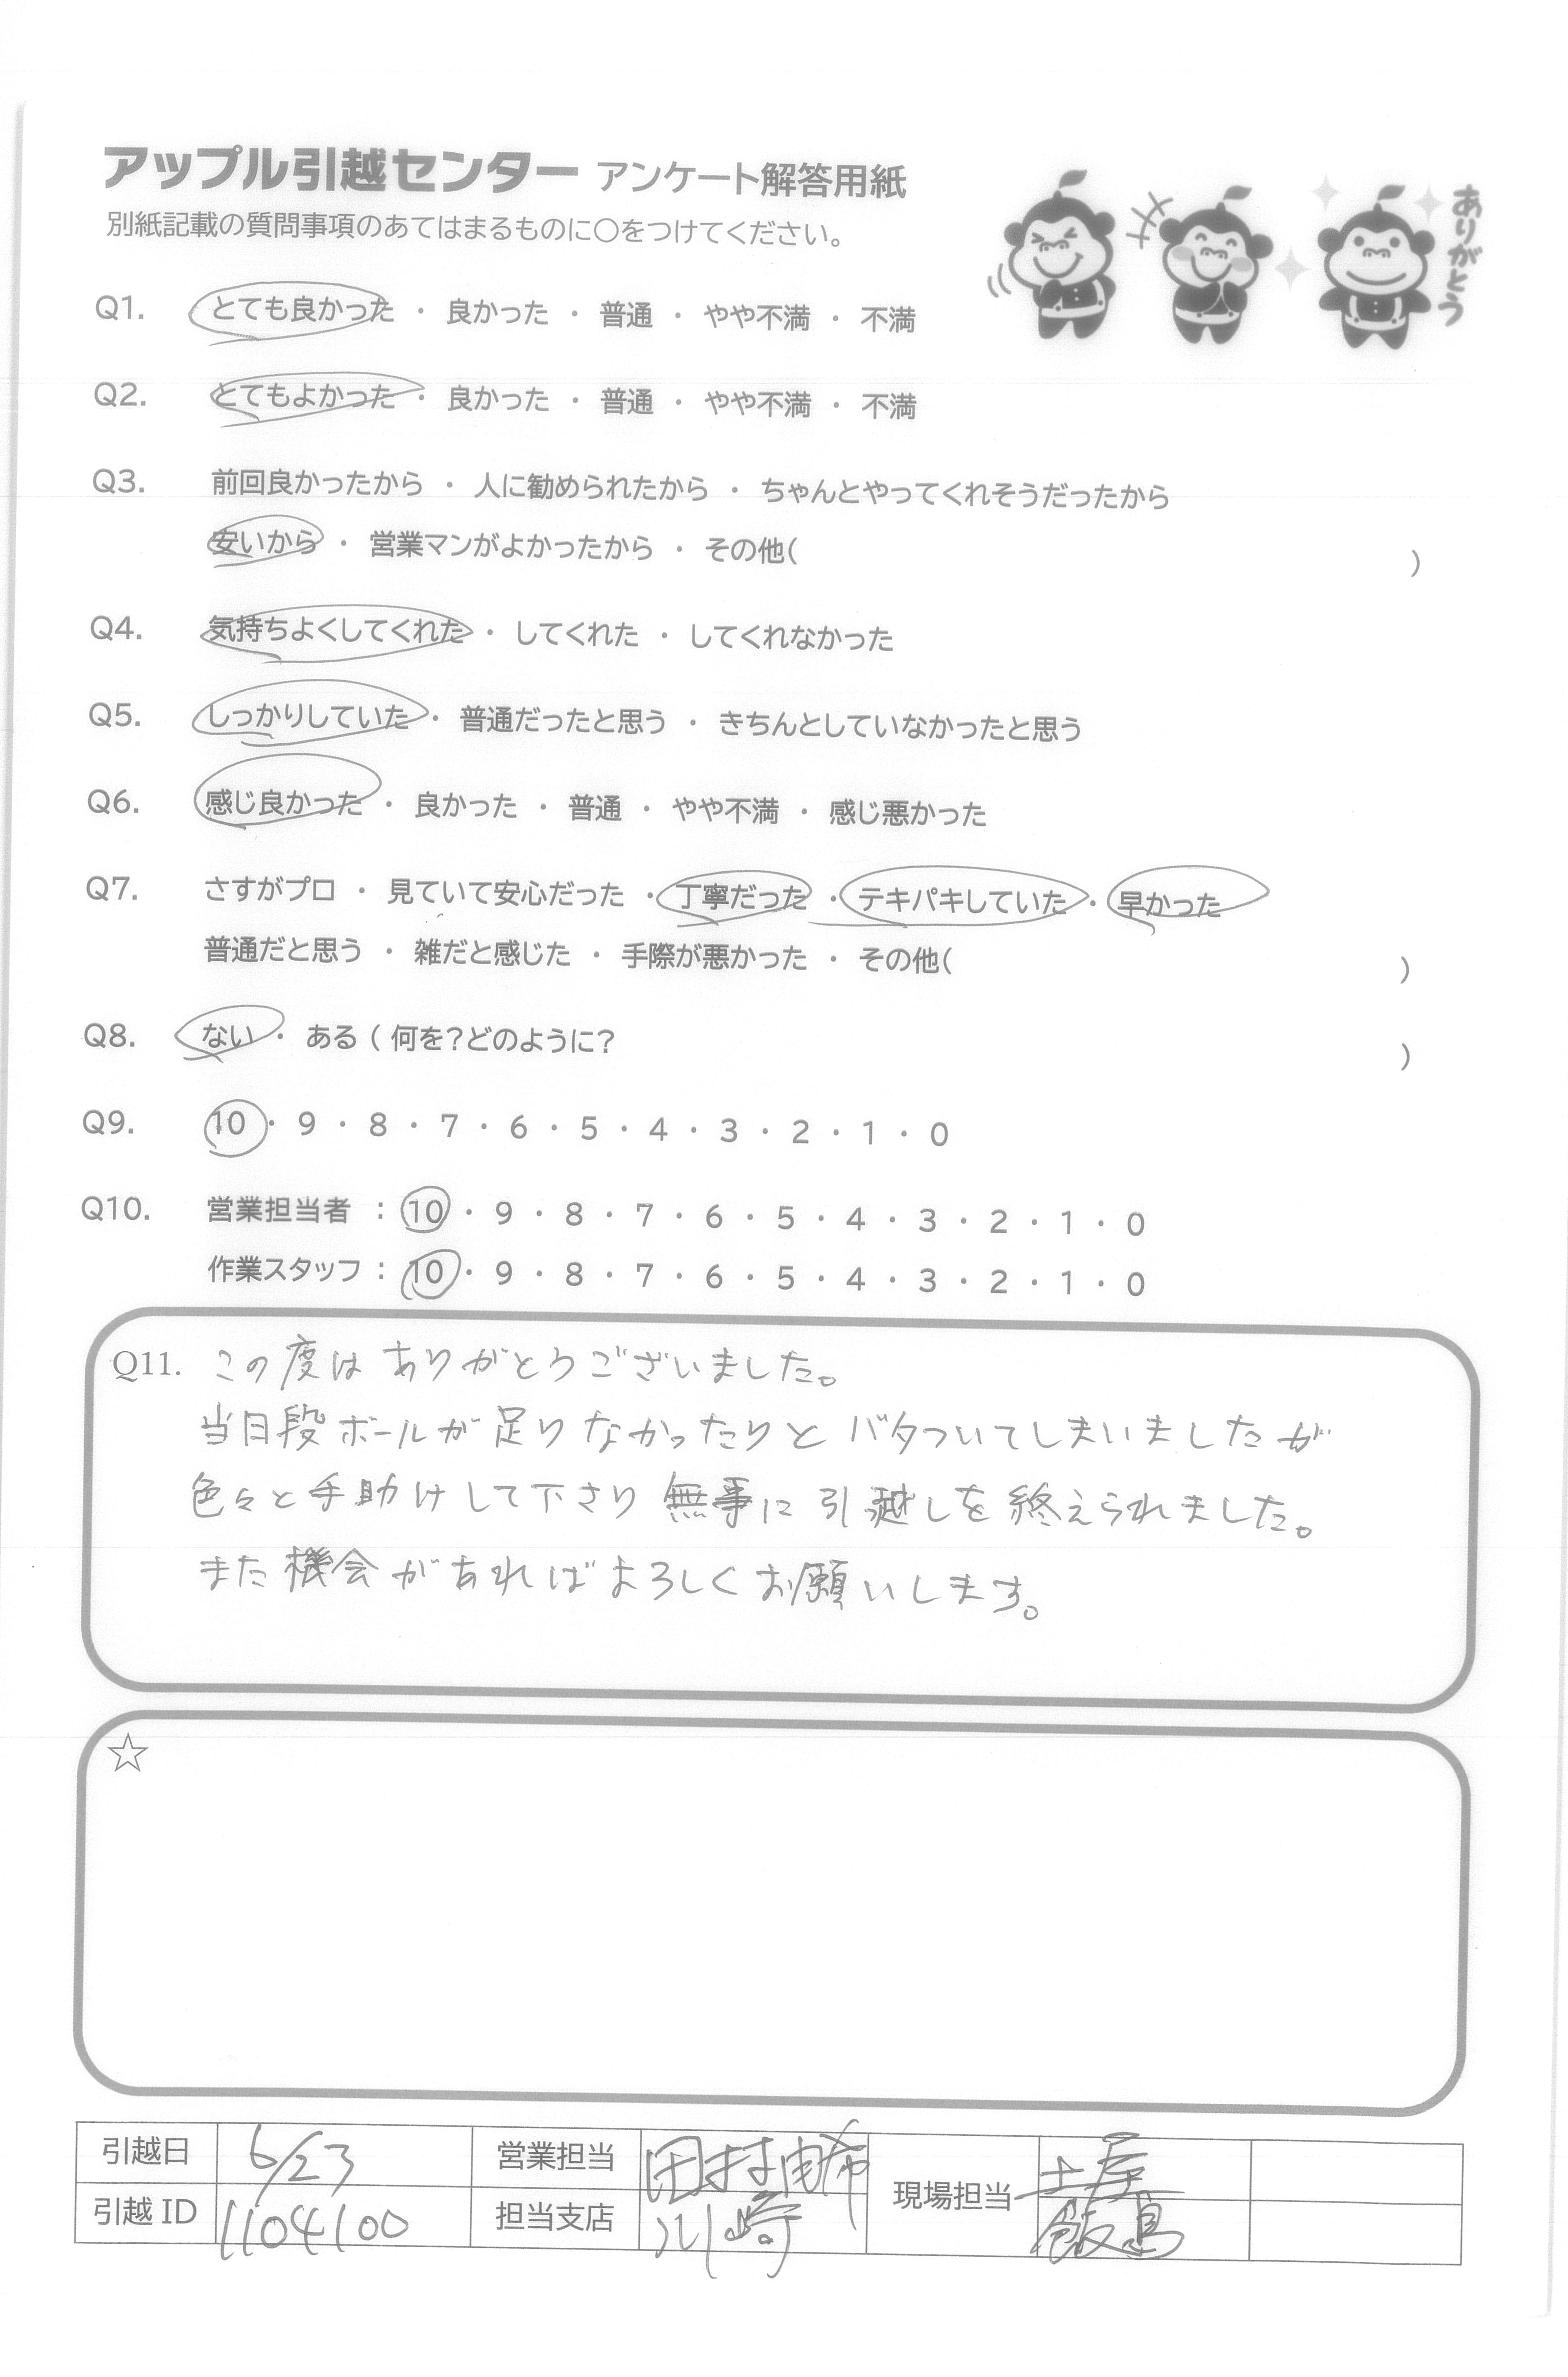 アップル引越センター アンケート解答用紙
別紙記載の質問事項のあてはまるものに○をつけてください。
ありがとう
Q1. とても良かった ・ 良かった ・ 普通 ・ やや不満 ・ 不満
Q2. とてもよかった ・ 良かった ・ 普通 ・ やや不満 ・ 不満
Q3. 前回良かったから ・ 人に勧められたから ・ ちゃんとやってくれそうだったから
安いから ・ 営業マンがよかったから ・ その他( )
Q4. 気持ちよくしてくれた ・ してくれた ・ してくれなかった
Q5. しっかりしていた ・ 普通だったと思う ・ きちんとしていなかったと思う
Q6. 感じ良かった ・ 良かった ・ 普通 ・ やや不満 ・ 感じ悪かった
Q7. さすがプロ ・ 見ていて安心だった ・ 丁寧だった ・ テキパキしていた ・ 早かった
普通だと思う ・ 雑だと感じた ・ 手際が悪かった ・ その他( )
Q8. ない ・ ある ( 何を?どのように? )
Q9. 10 ・ 9 ・ 8 ・ 7 ・ 6 ・ 5 ・ 4 ・ 3 ・ 2 ・ 1 ・ 0
Q10. 営業担当者 : 10 ・ 9 ・ 8 ・ 7 ・ 6 ・ 5 ・ 4 ・ 3 ・ 2 ・ 1 ・ 0
作業スタッフ : 10 ・ 9 ・ 8 ・ 7 ・ 6 ・ 5 ・ 4 ・ 3 ・ 2 ・ 1 ・ 0
Q11. この度は ありがとうございました。
当日段ボールが足りなかったりと バタついてしまいましたが
色々と手助けして下さり 無事に引越しを終えられました。
また機会があればよろしくお願いします。
☆
引越日 6/23 営業担当 田村 現場担当 土屋
引越 ID 1104100 担当支店 川崎 飯島